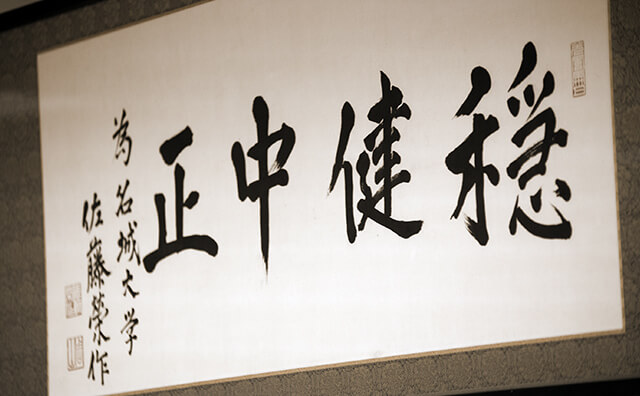 穏健中正
為名城大学
佐藤榮作